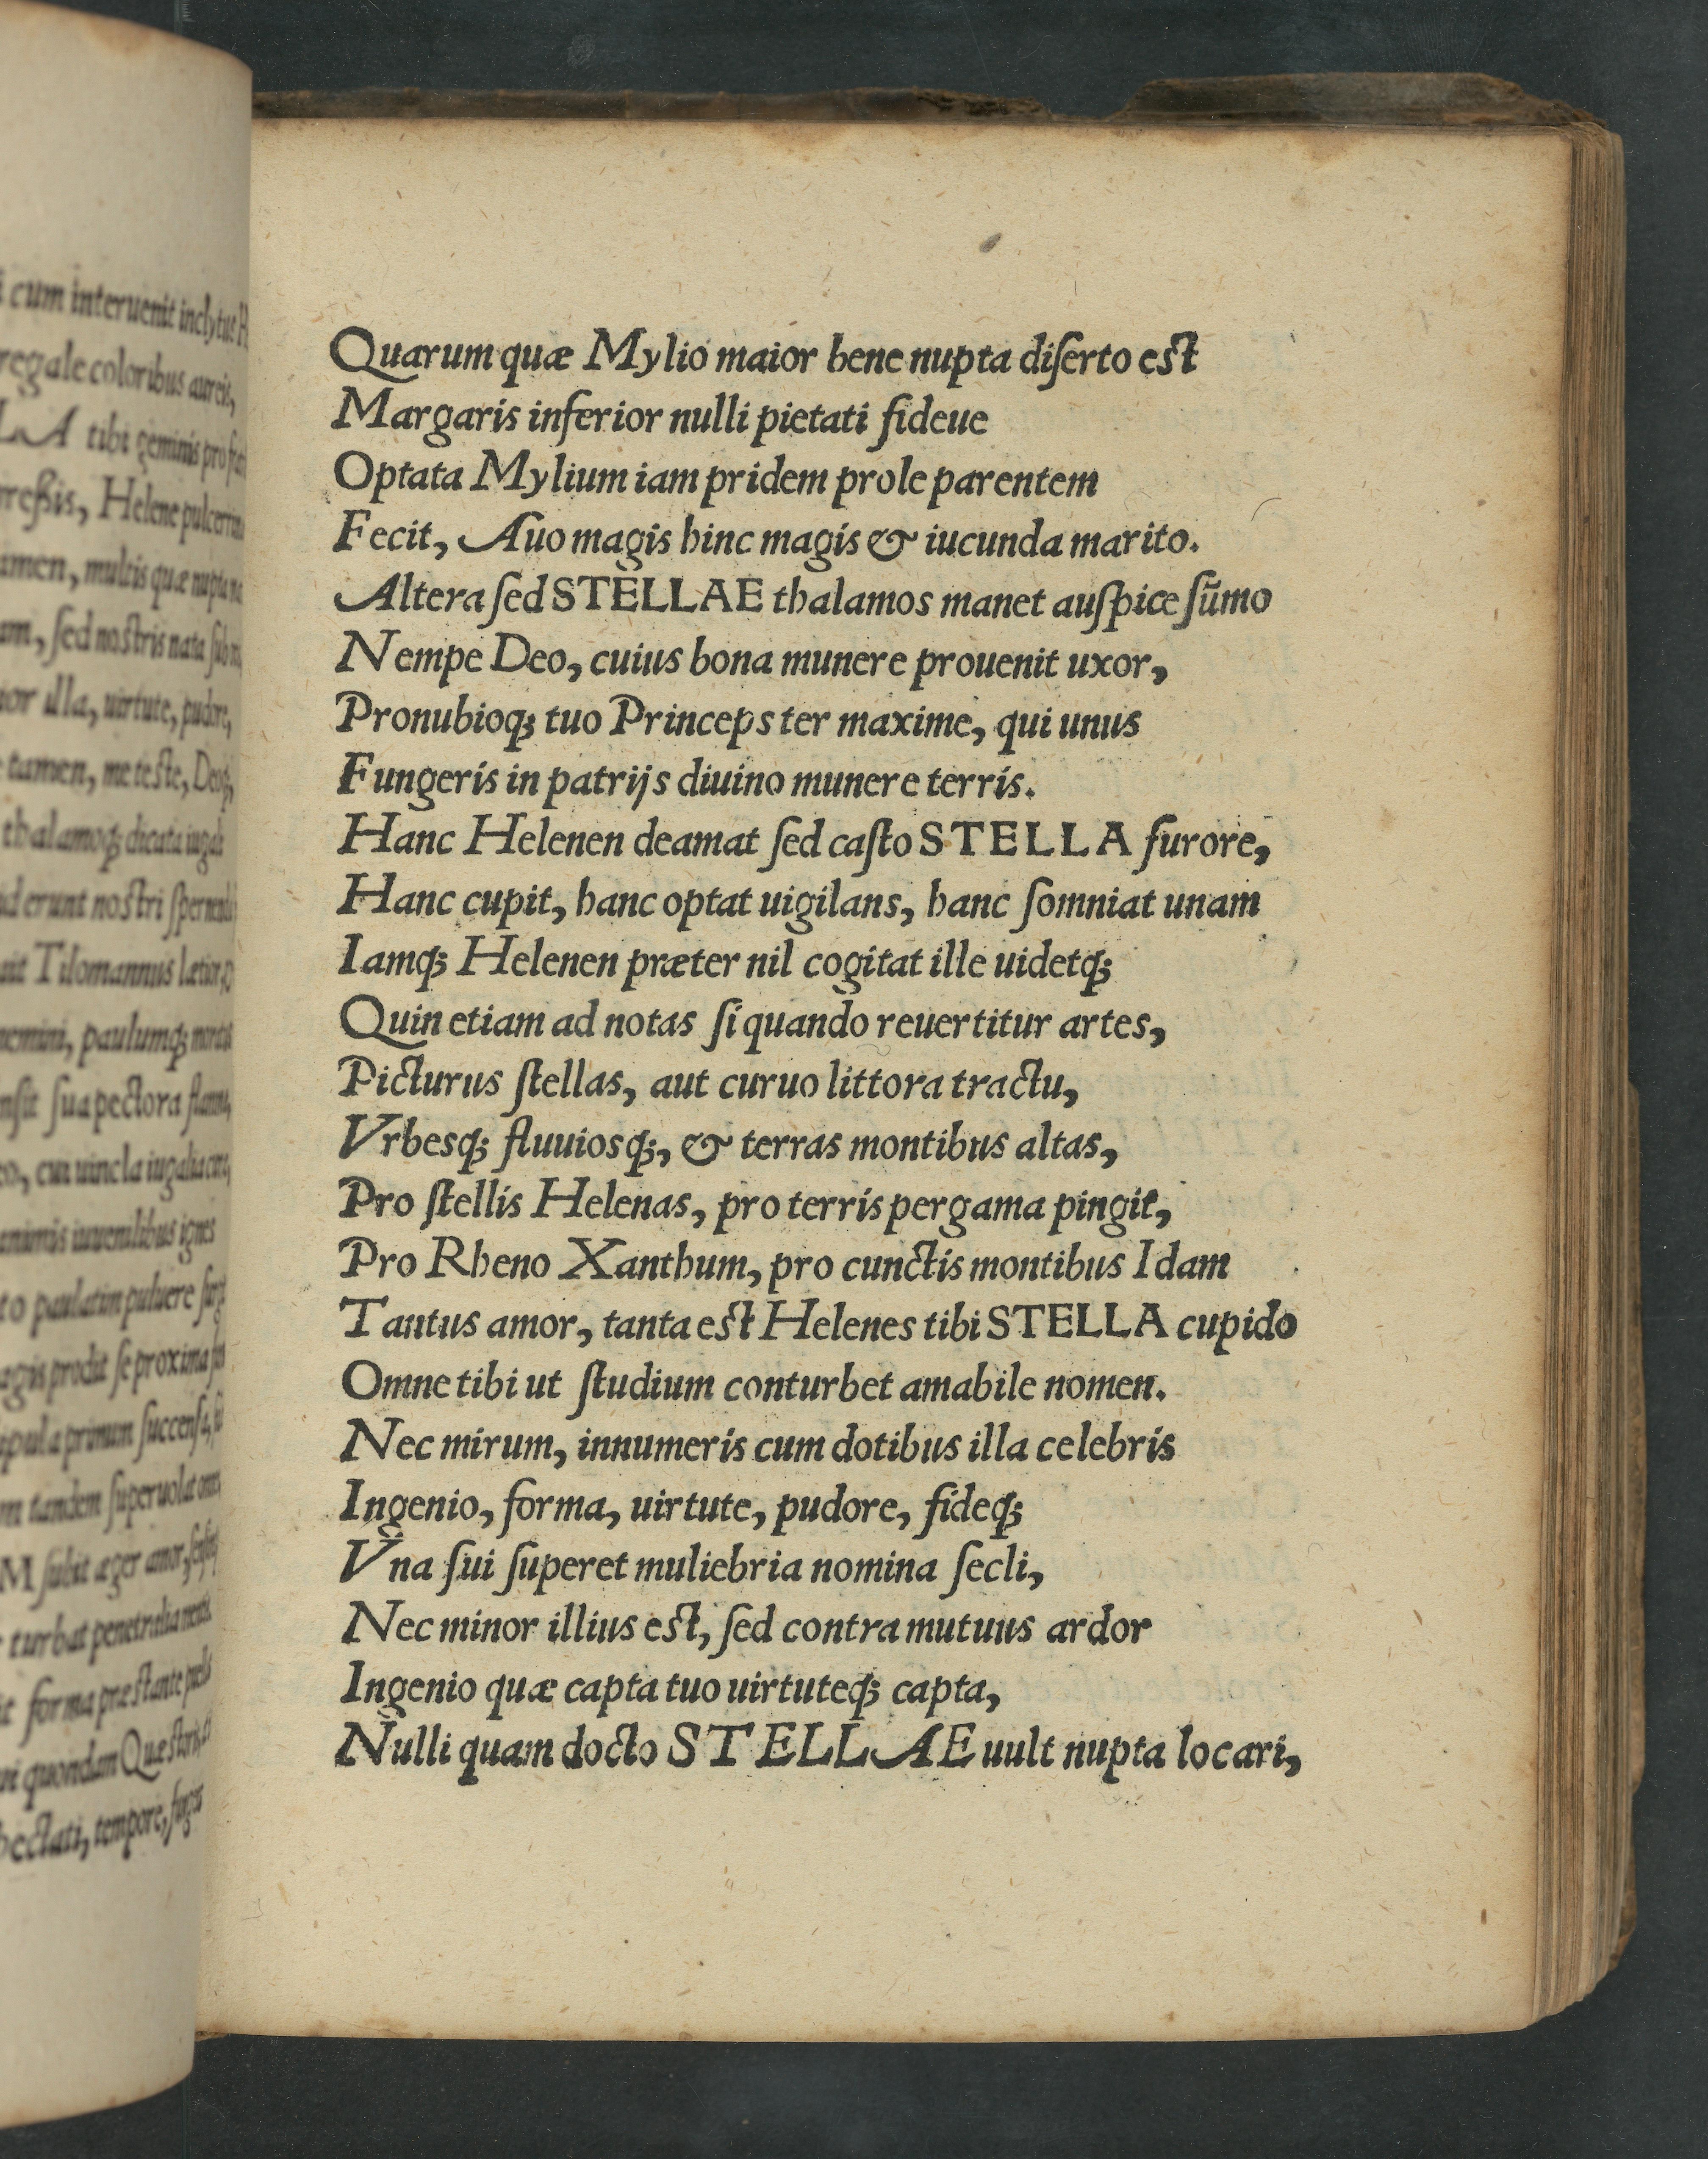 cum interuenit inclytus
regale coloribus aureis,
tibi geminis pro
Helene pulcerrima
multis quæ nupta
sed nostris nata sub
illa, uirtute, pudore,
tamen, me teste, Deoq́;
thalamoq́; dicata iugali
erunt nostri
Tilomannus lætior
paulumq́;
sua pectora flamma,
cui uincla iugalia
animis iuuenilibus ignes
paulatim puluere
prodit se proxima
primum succensa,
tandem superuolat
subit æger amor,
turbat penetralia mentis
forma præstante
quondam Quæstoris
tempore,
Quarum quæ Mylio maior bene nupta diſerto est
Margaris inferior nulli pietati fideue
Optata Mylium iam pridem prole parentem
Fecit, Auo magis hinc magis & iucunda marito.
Altera ſed STELLAE thalamos manet auſpice ſūmo
Nempe Deo, cuius bona munere prouenit uxor,
Pronubioq́; tuo Princeps ter maxime, qui unus
Fungeris in patrijs diuino munere terris.
Hanc Helenen deamat ſed caſto STELLA furore,
Hanc cupit, hanc optat uigilans, hanc ſomniat unam
Iamq́; Helenen præter nil cogitat ille uidetq́;
Quin etiam ad notas ſi quando reuertitur artes,
Picturus ſtellas, aut curuo littora tractu,
Vrbesq́; fluuiosq́;, & terras montibus altas,
Pro ſtellis Helenas, pro terris pergama pingit,
Pro Rheno Xanthum, pro cunctis montibus Idam
Tantus amor, tanta est Helenes tibi STELLA cupido
Omne tibi ut ſtudium conturbet amabile nomen.
Nec mirum, innumeris cum dotibus illa celebris
Ingenio, forma, uirtute, pudore, fideq́;
Vna ſui ſuperet muliebria nomina ſecli,
Nec minor illius est, ſed contra mutuus ardor
Ingenio quæ capta tuo uirtuteq́; capta,
Nulli quam docto STELLAE uult nupta locari,